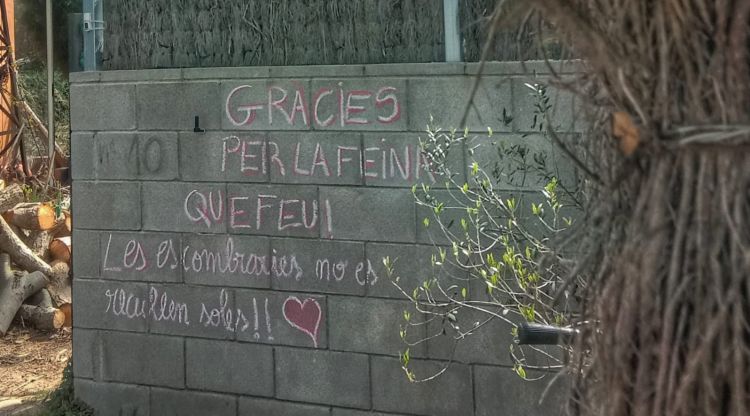 GRACIES
Nº10
PER LA FEINA
QUE FEU!
Les escombraries no es
recullen soles!!